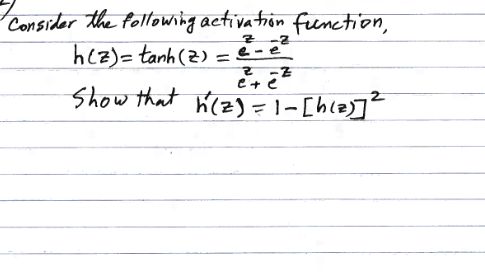 Consider the following activation function,
h(z) = tanh(z) = (e^z - e^-z) / (e^z + e^-z)
Show that h'(z) = 1 - [h(z)]^2